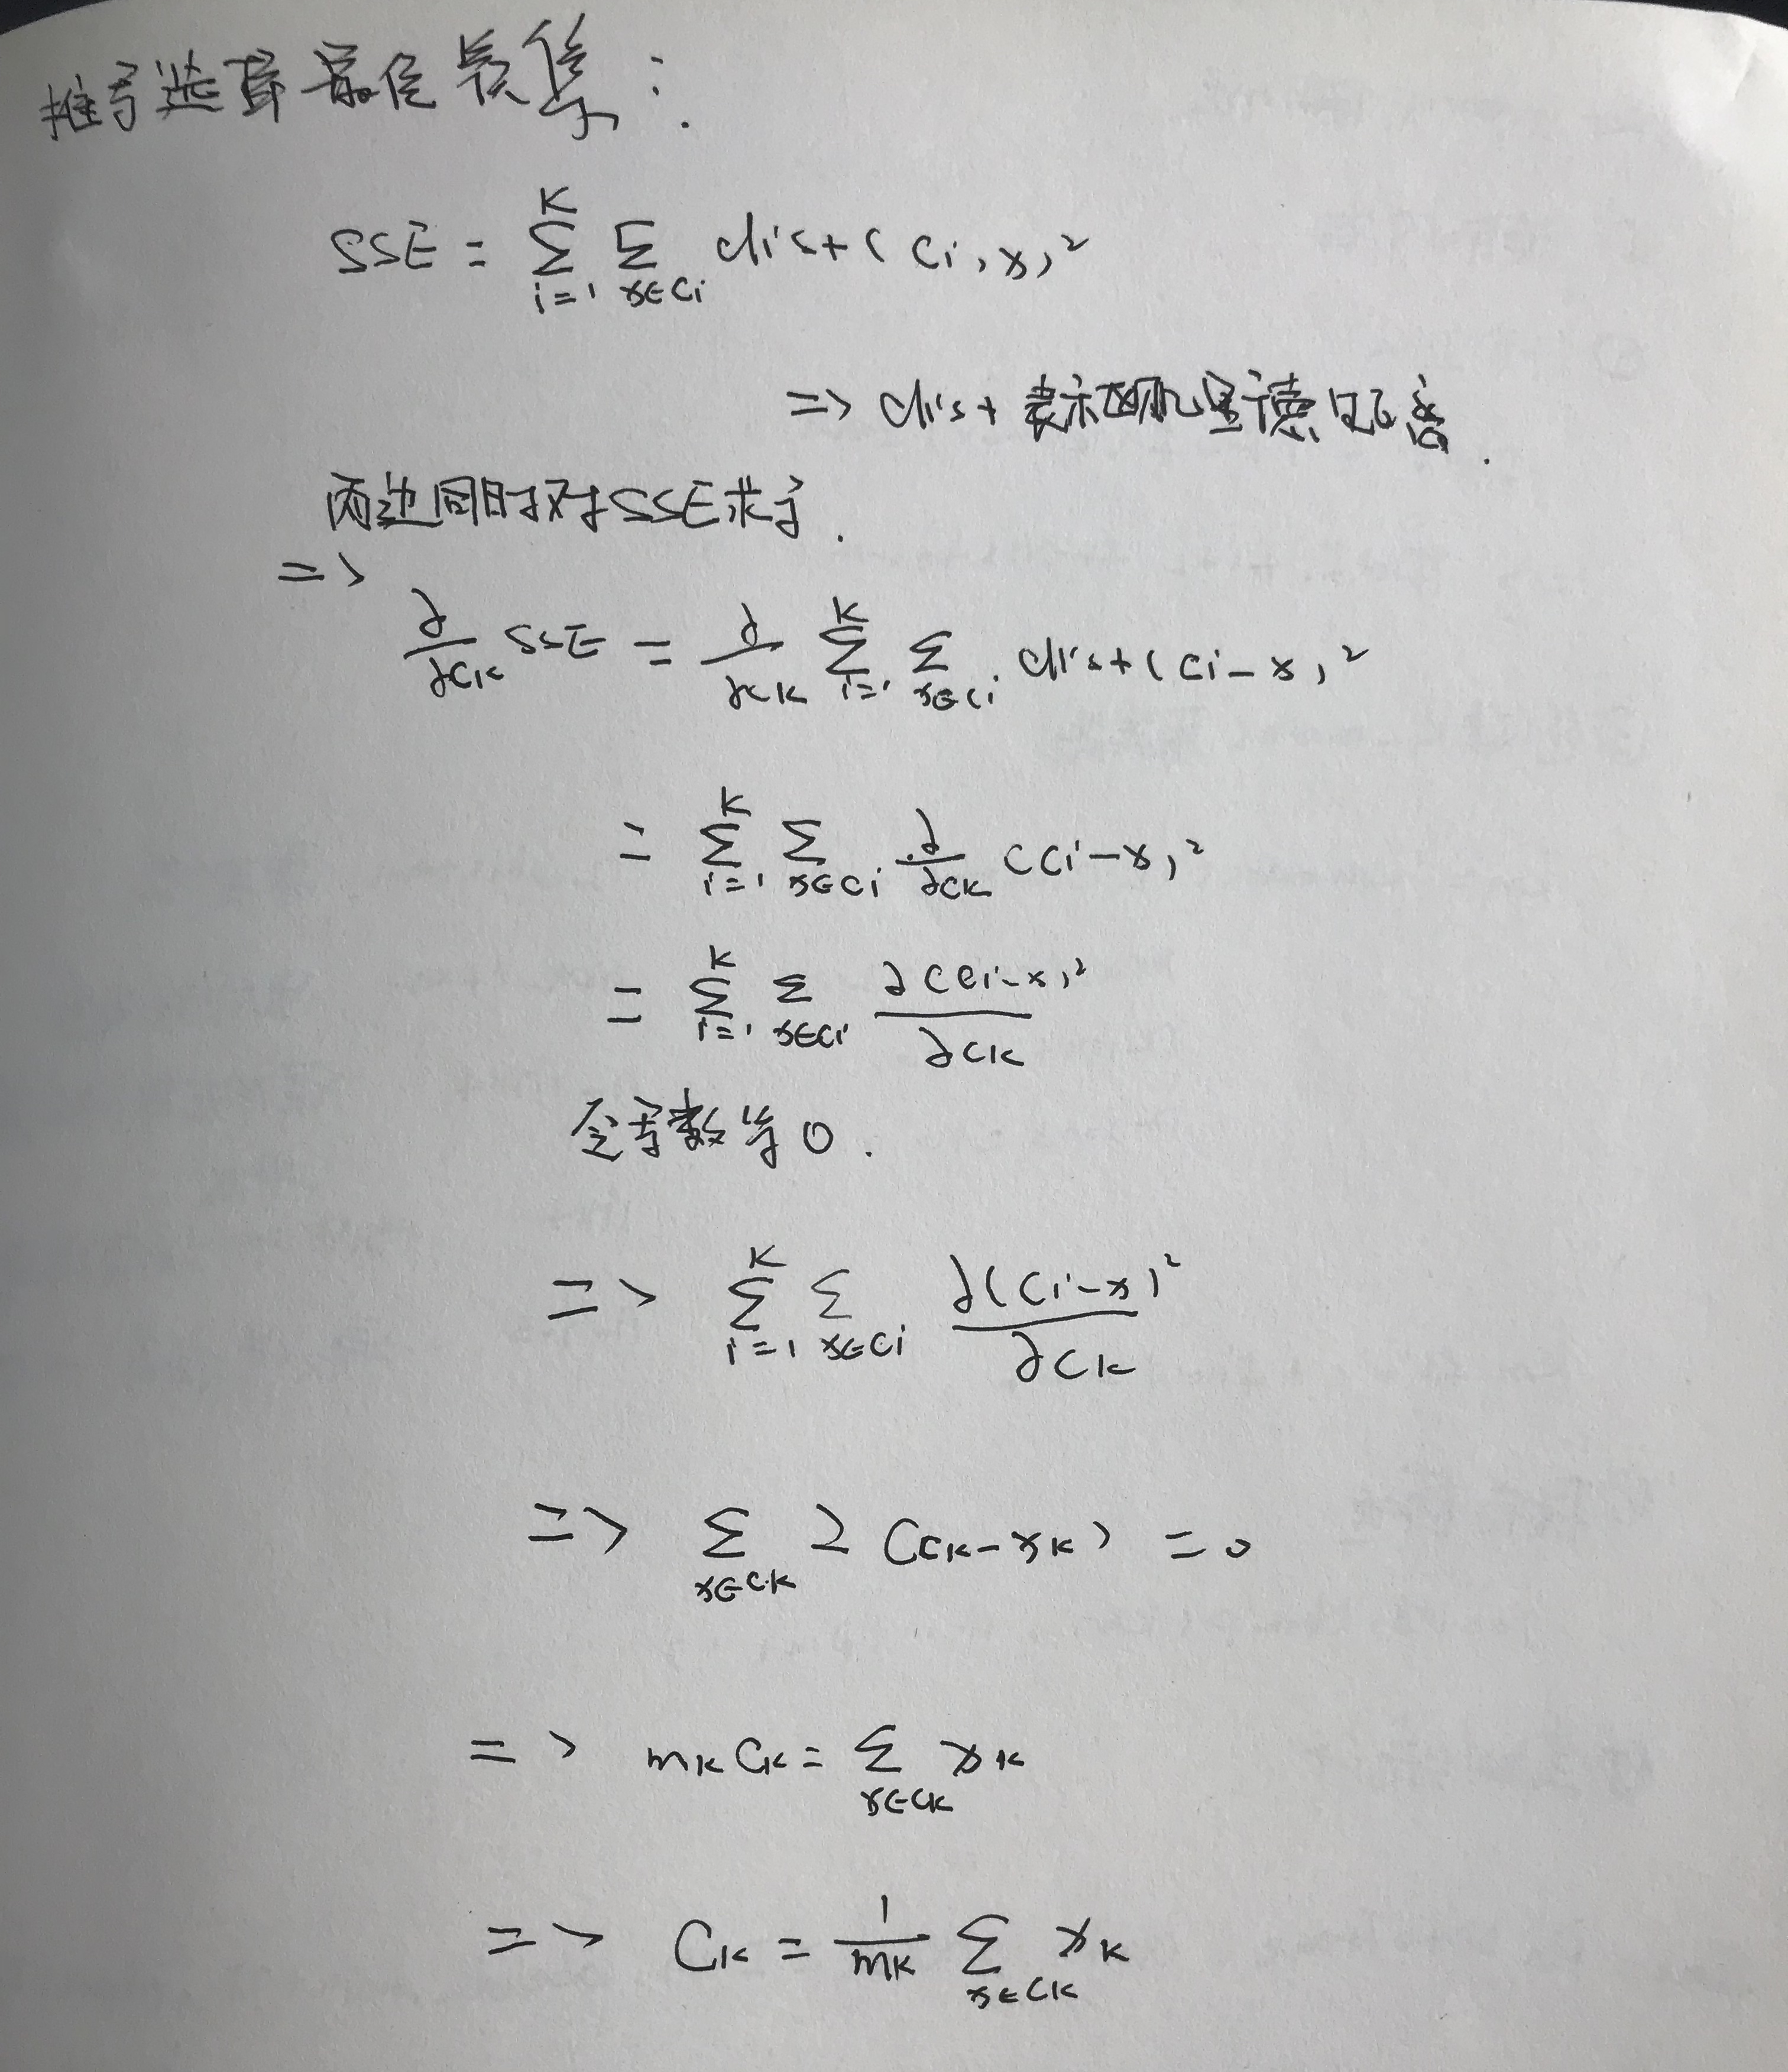 推导选择最佳簇集:
SSE = Σ_{i=1}^{K} Σ_{x∈Ci} dist(Ci, x)²
=> dist 表示欧几里德距离.
两边同时对SSE求导.
=>
∂/∂CK SSE = ∂/∂CK Σ_{i=1}^{K} Σ_{x∈Ci} dist(Ci-x)²
= Σ_{i=1}^{K} Σ_{x∈Ci} ∂/∂CK (Ci-x)²
= Σ_{i=1}^{K} Σ_{x∈Ci} ∂(Ci-x)²/∂CK
令导数等0.
=> Σ_{i=1}^{K} Σ_{x∈Ci} ∂(Ci-x)²/∂CK
=> Σ_{x∈CK} 2(CK-xK) = 0
=> mK CK = Σ_{x∈CK} xK
=> CK = 1/mK Σ_{x∈CK} xK